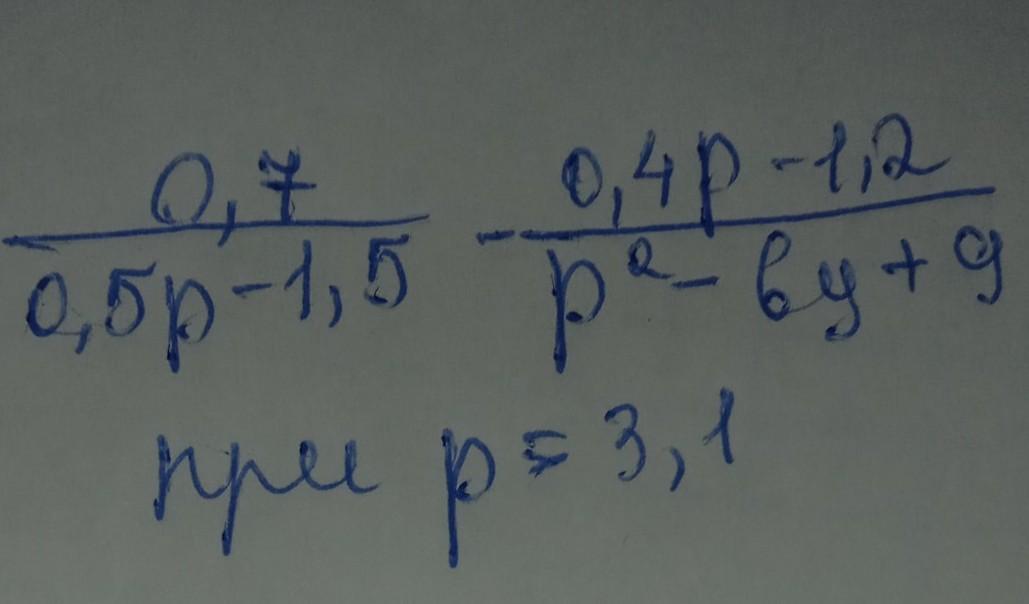 0,7 0,4p - 1,2
0,5p - 1,5 - p² - 6y + 9
при p = 3,1